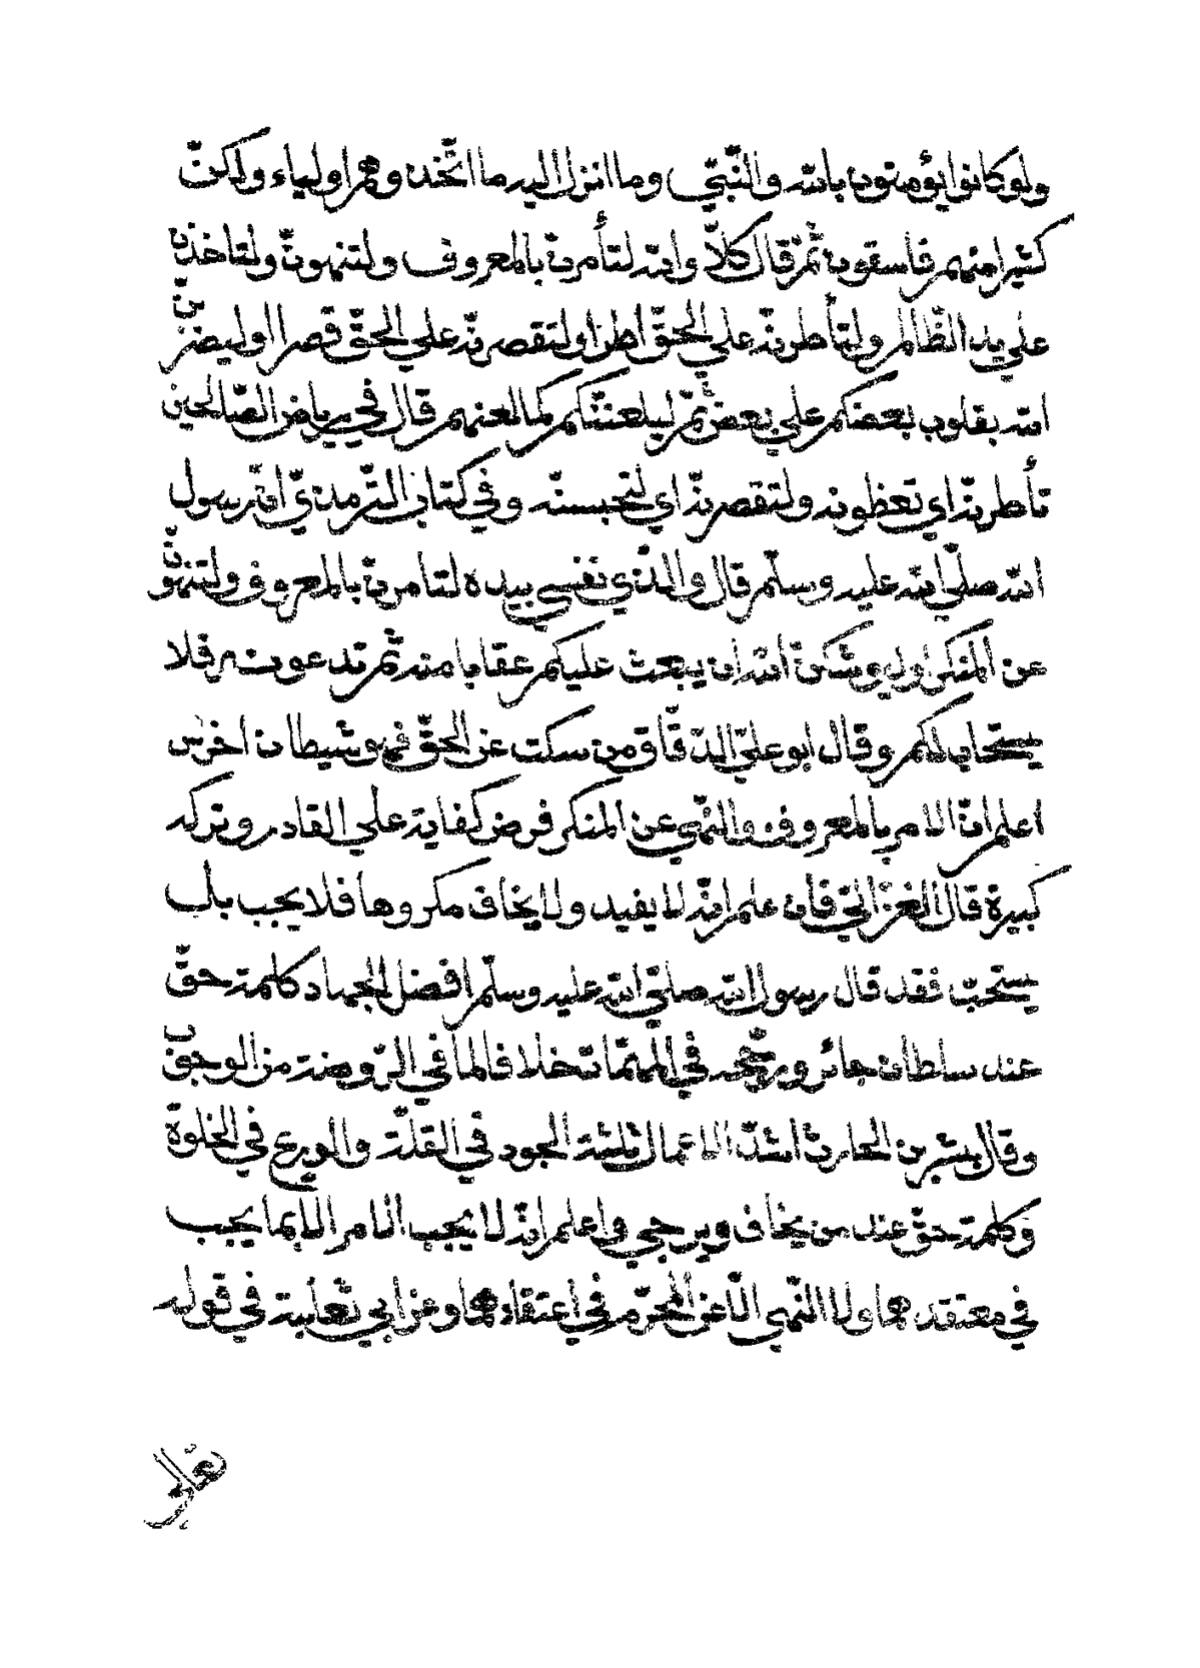 ولو كانوا يؤمنون بالله والنّبيّ وما انزل اليه ما اتّخذوهم اولياء ولكنّ
كثيرا منهم فاسقون ثمّ قال كلاّ والله لتأمرنّ بالمعروف ولتنهونّ ولتاخذنّ
علي يد الظّالم ولتأطرنّه علي الحقّ اطرا ولتقصرنّه علي الحقّ قصرا اوليضربنّ
الله بقلوب بعضكم علي بعض ثمّ ليلعننّكم كما لعنهم قال في رياض الصّالحين
تأطرنّه اي تعظونه ولتقصرنّه اي لتحبسنّه وفي كتاب التّرمذيّ انّ رسول
الله صلّي الله عليه وسلّم قال والّذي نفسي بيده لتامرنّ بالمعروف ولتنهونّ
عن المنكر اوليوشكنّ الله ان يبعث عليكم عقابا منه ثمّ تدعونه فلا
يستجاب لكم وقال ابو عليّ الدّقّاق من سكت عن الحقّ فهو شيطان اخرس
اعلم انّ الامر بالمعروف والنّهي عن المنكر فرض كفاية علي القادر وتركه
كبيرة قال الغزّاليّ فان علم انّه لا يفيد ولا يخاف مكروها فلا يجب بل
يستحبّ فقد قال رسول الله صلّي الله عليه وسلّم افضل الجهاد كلمة حقّ
عند سلطان جائر ورجّحه في المهمّات خلافا لما في الرّوضة من الوجوب
وقال بشر بن الحارث اشدّ الاعمال ثلثة الجود في القلّة والورع في الخلوة
وكلمة حقّ عند من يخاف ويرجي واعلم انّه لا يجب الامر الا بما يجب
في معتقدهما ولا النّهي الّا عن المحرّم في اعتقادهما وعن ابي ثعلبة في قوله